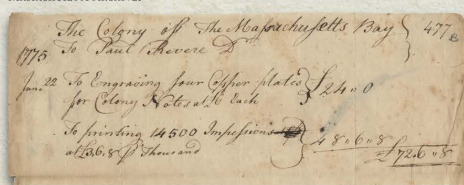 The Colony off The Massachusetts Bay 477
1775 To Paul Revere Dr
June 22 To Engraving four Copper plates
for Colony Notes at £6 Each £24 " 0
To printing 14500 Impressions
at £3,6,8 Pr Thousand 48 " 6 " 8
£72,6 " 8